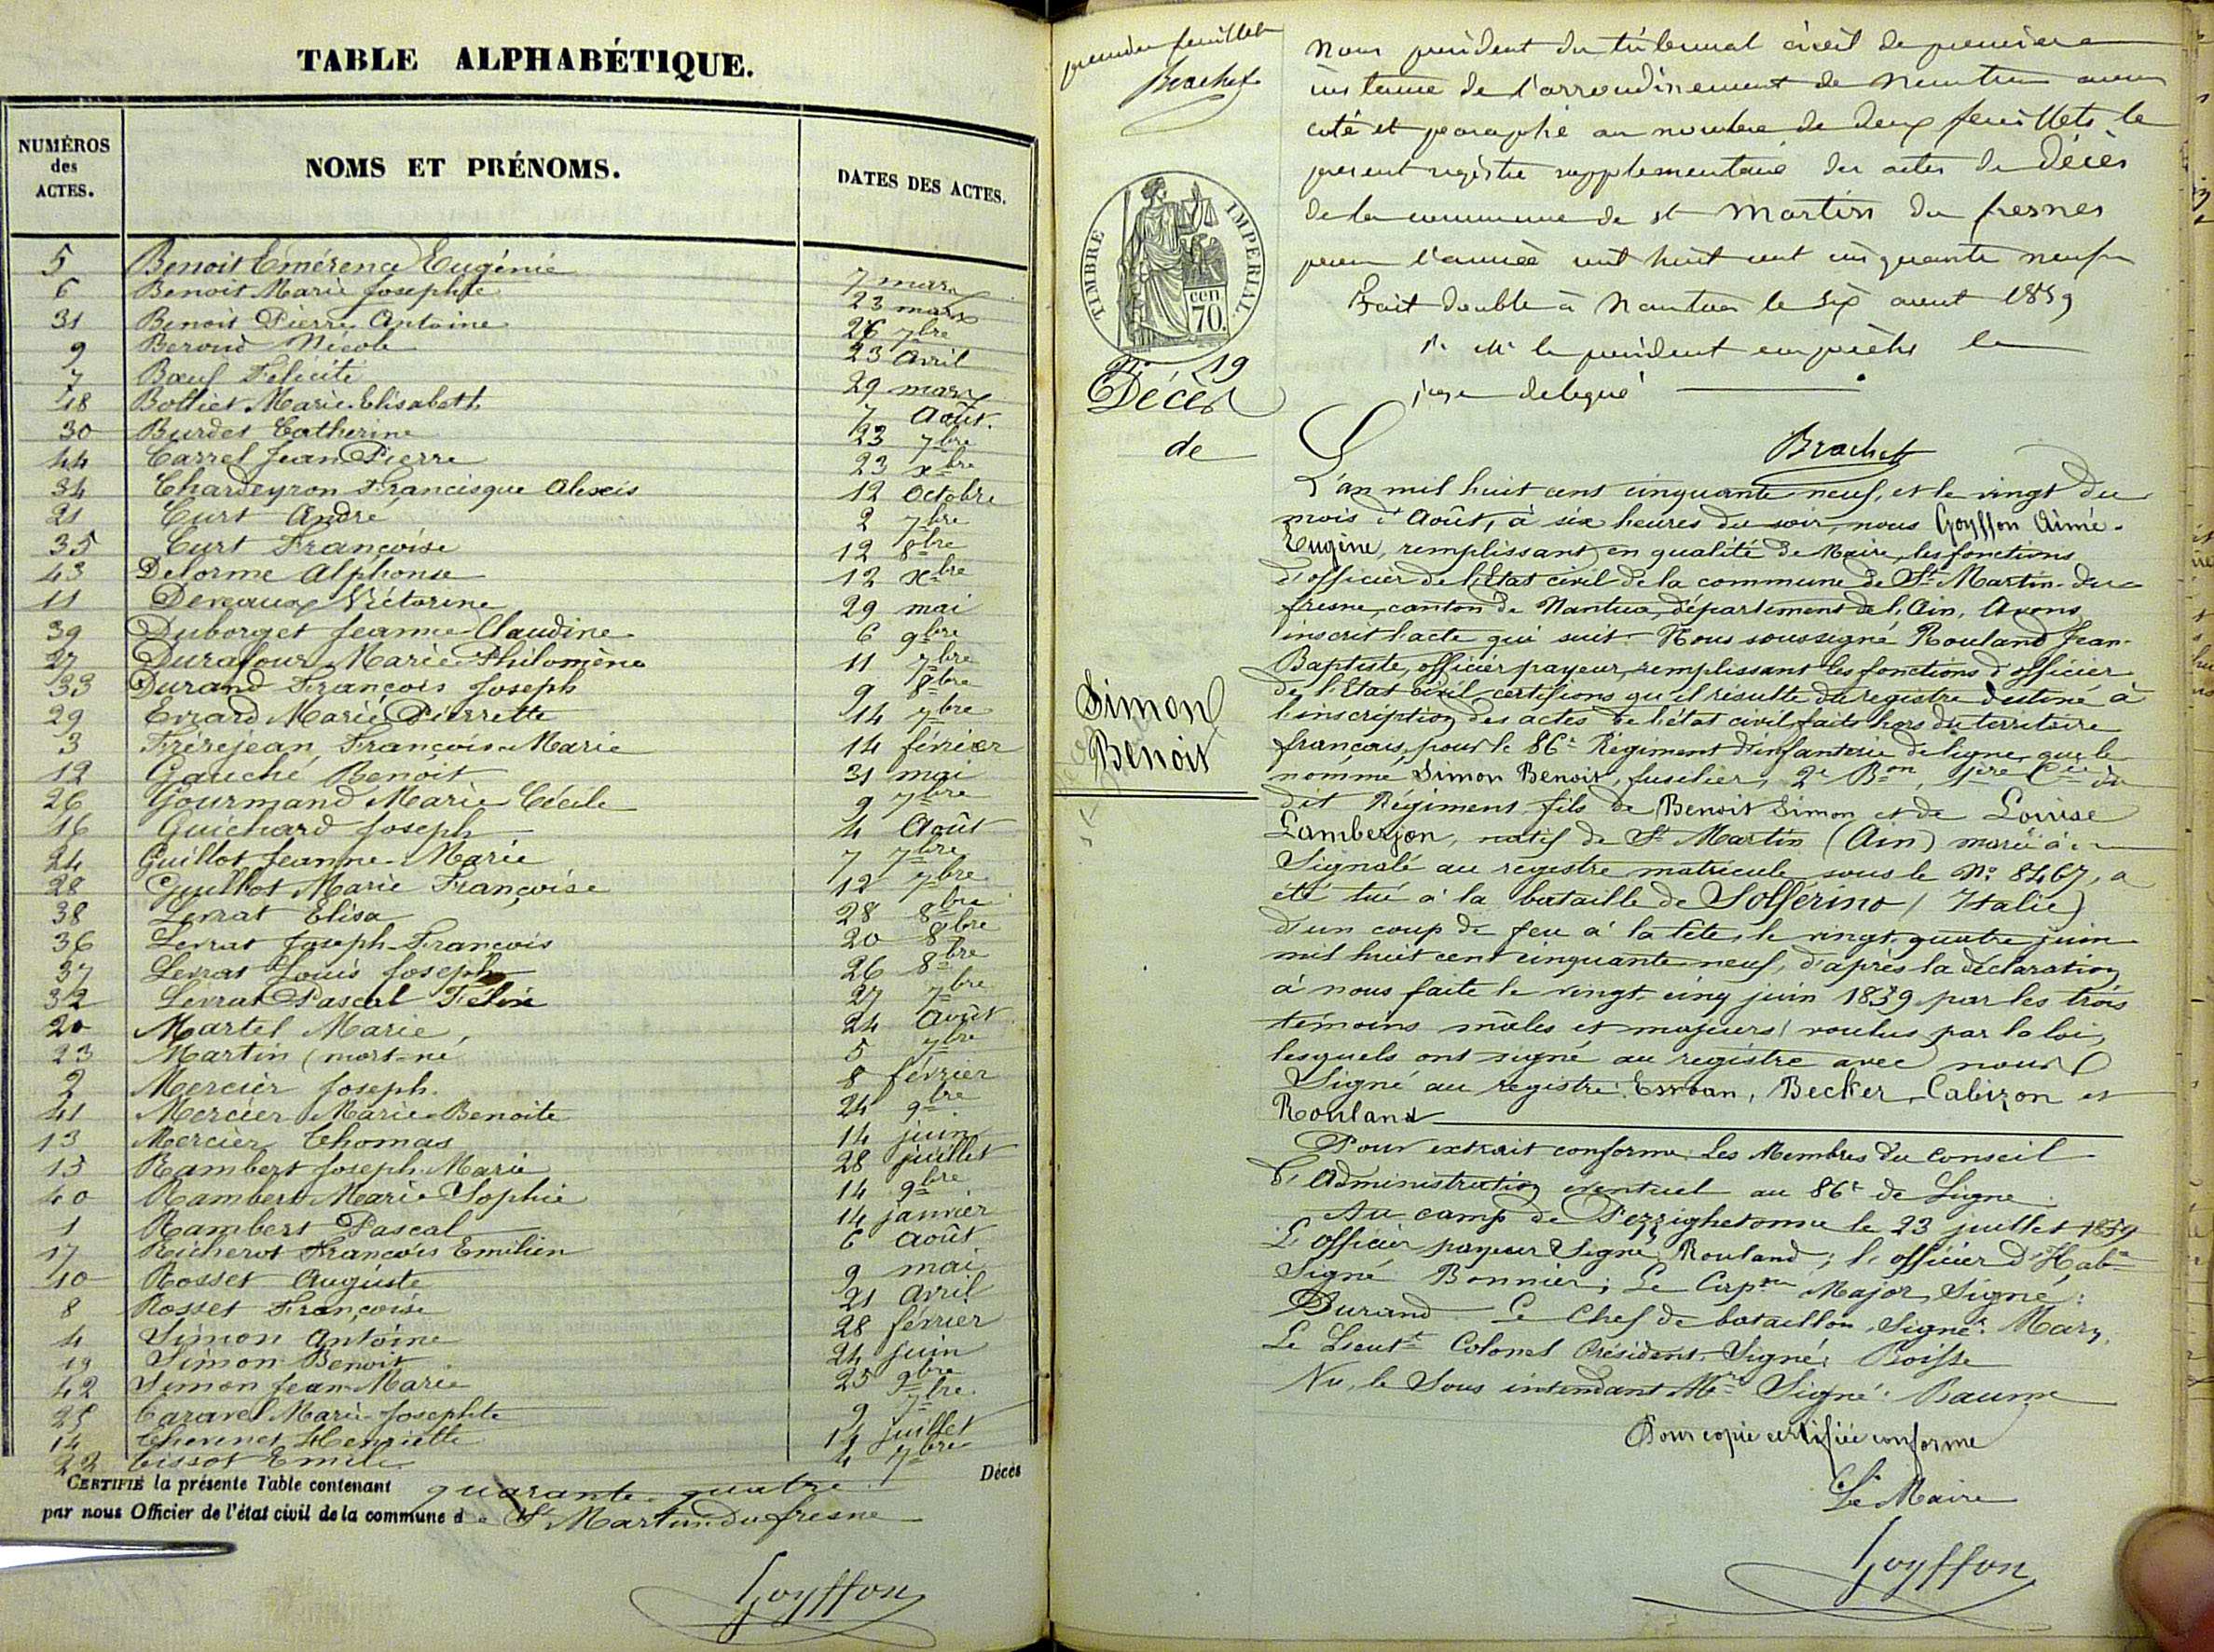 TABLE ALPHABÉTIQUE.
NUMÉROS des ACTES.
NOMS ET PRÉNOMS.
DATES DES ACTES.
5 Benoit Emérence Eugénie 7 mars
6 Benoit Marie Josephte 23 mars
31 Benoit Pierre Antoine 26 7bre
9 Beroud Nicole 23 avril
7 Bœuf Félicité 29 mars
18 Bolliet Marie Elisabeth 7 Août.
30 Burdet Catherine 23 7bre
44 Carrel Jean Pierre 23 xbre
34 Chardeyron Francisque Alexis 12 Octobre
21 Curt André 2 7bre
35 Curt Françoise 12 8bre
43 Delorme Alphonse 12 xbre
11 Devaux Victorine 29 mai
39 Duborget Jeanne Claudine 6 9bre
27 Durafour Marie Philomène 11 7bre
33 Durand François Joseph 9 8bre
29 Evrard Marie Pierrette 14 7bre
3 Frérejean, François Marie 14 février
12 Gauché Benoit 31 mai
26 Gourmand Marie Cécile 9 7bre
16 Guichard Joseph 4 Août
24 Guillot Jeanne-Marie 7 7bre
28 Guillot Marie Françoise 12 7bre
38 Levrat Elisa 28 8bre
36 Levrat Joseph-François 20 8bre
37 Levrat Louis Joseph 26 8bre
32 Levrat Pascal Félix 27 7bre
20 Martel Marie, 24 Août
23 Martin (mort-né 5 7bre
2 Mercier Joseph. 8 février
41 Mercier Marie-Benoite 24 9bre
13 Mercier Thomas 14 juin
15 Rambert Joseph-Marie 28 juillet
40 Rambert Marie Sophie 14 9bre
1 Rambert Pascal 14 janvier
17 Richerot François Emilien 6 Août
10 Rosset Auguste 9 mai
8 Rosset Françoise 21 Avril
4 Simon Antoine 28 février
19 Simon Benoit 24 juin
42 Simon Jean-Marie 25 9bre
25 Caravel Marie-Josephte 9 7bre
14 Thevenet Henriette 14 juillet
22 Tissot Emile 4 7bre
CERTIFIÉ la présente Table contenant quarante-quatre Décès
par nous Officier de l'état civil de la commune de St Martin-du-fresne
Goyffon
premier feuillet
Brachet
Nous président du tribunal civil de première
instance de l'arrondissement de Nantua avons
coté et paraphé au nombre de deux feuillets le
present registre supplementaire des actes de Décès
de la commune de st Martin du fresnes
pour l'année mil huit cent cinquante neuf
Fait double à Nantua le Six aout 1859
Pr Mr le président empêché le
juge délégué
Brachet
TIMBRE IMPERIAL
cen 70.
No 19
Décès
de
Simon
Benoit
L'an mil huit cent cinquante neuf, et le vingt du
mois d'Août, à six heures du soir, nous Goyffon Aimé-
Eugène, remplissant en qualité de Maire, les fonctions
d'officier de l'Etat civil de la commune de St Martin-du-
fresne, canton de Nantua, département de l'Ain. Avons
inscrit l'acte qui suit. Nous soussigné Rouland Jean-
Baptiste, officier payeur, remplissant les fonctions d'officier
de l'Etat civil, certifions qu'il résulte du registre destiné à
l'inscription des actes de l'état civil faits hors du territoire
français, pour le 86e Régiment d'infanterie de ligne, que le
nommé Simon Benoit, fusilier, 2e Bon, 1ere Cie du
dit Régiment, fils de Benoit Simon et de Louise
Lamberjon, natif de St Martin (Ain) marié à
Signalé au registre matricule sous le No 8467, a
été tué à la bataille de Solférino (Italie)
d'un coup de feu à la tête, le vingt-quatre juin
mil huit cent cinquante neuf, d'après la déclaration
à nous faite le vingt-cinq juin 1859 par les trois
témoins mâles et majeurs voulus par la loi,
lesquels ont signé au registre avec nous
Signé au registre: Becker, Cabizon et
Rouland
Pour extrait conforme: Les Membres du Conseil
d'Administration eventuel au 86e de Ligne.
Au camp de Pezzighetonne le 23 juillet 1859
L'officier payeur Signé Rouland; l'officier d'Habt
Signé Bonnier; Le Capne Major, Signé:
Durand Le Chef de bataillon, Signé: Mary.
Le Lieutt Colonel Président, Signé: Boisse
Vu, le Sous intendant Mre Signé: Baume
Pour copie certifiée conforme
Le Maire
Goyffon